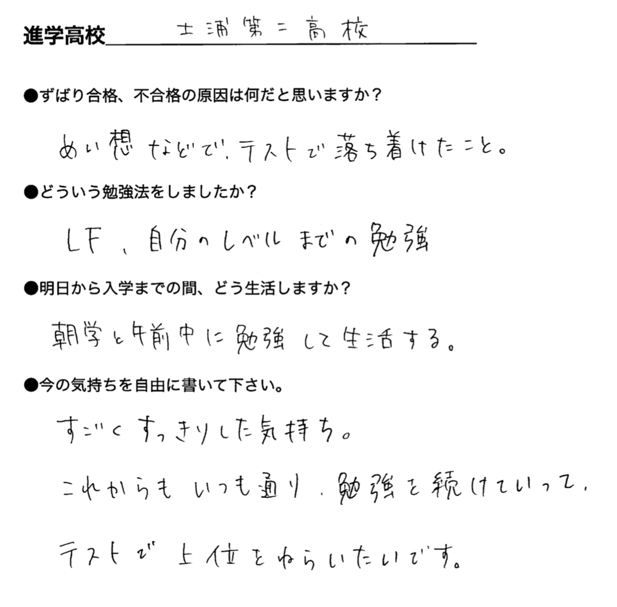 進学高校 土浦第二高校
●ずばり合格、不合格の原因は何だと思いますか？
めい想などで、テストで落ち着けたこと。
●どういう勉強法をしましたか？
LF、自分のレベルまでの勉強
●明日から入学までの間、どう生活しますか？
朝学と午前中に勉強して生活する。
●今の気持ちを自由に書いて下さい。
すごくすっきりした気持ち。
これからもいつも通り、勉強を続けていって、
テストで上位をねらいたいです。